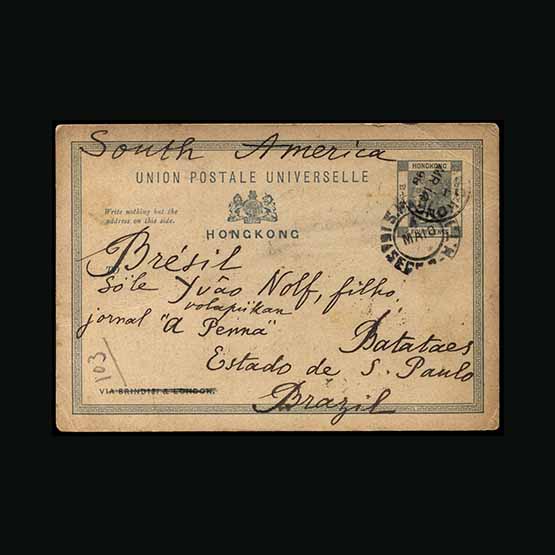 South America
UNION POSTALE UNIVERSELLE
HONGKONG
Write nothing but the
address on this side.
HONGKONG
Brésil
To
Söle Yvão Nolf, filho,
volapükan
jornal "A Penna"
Batataes
Estado de S. Paulo
Brazil
103
VIA BRINDISI & LONDON.
MAI